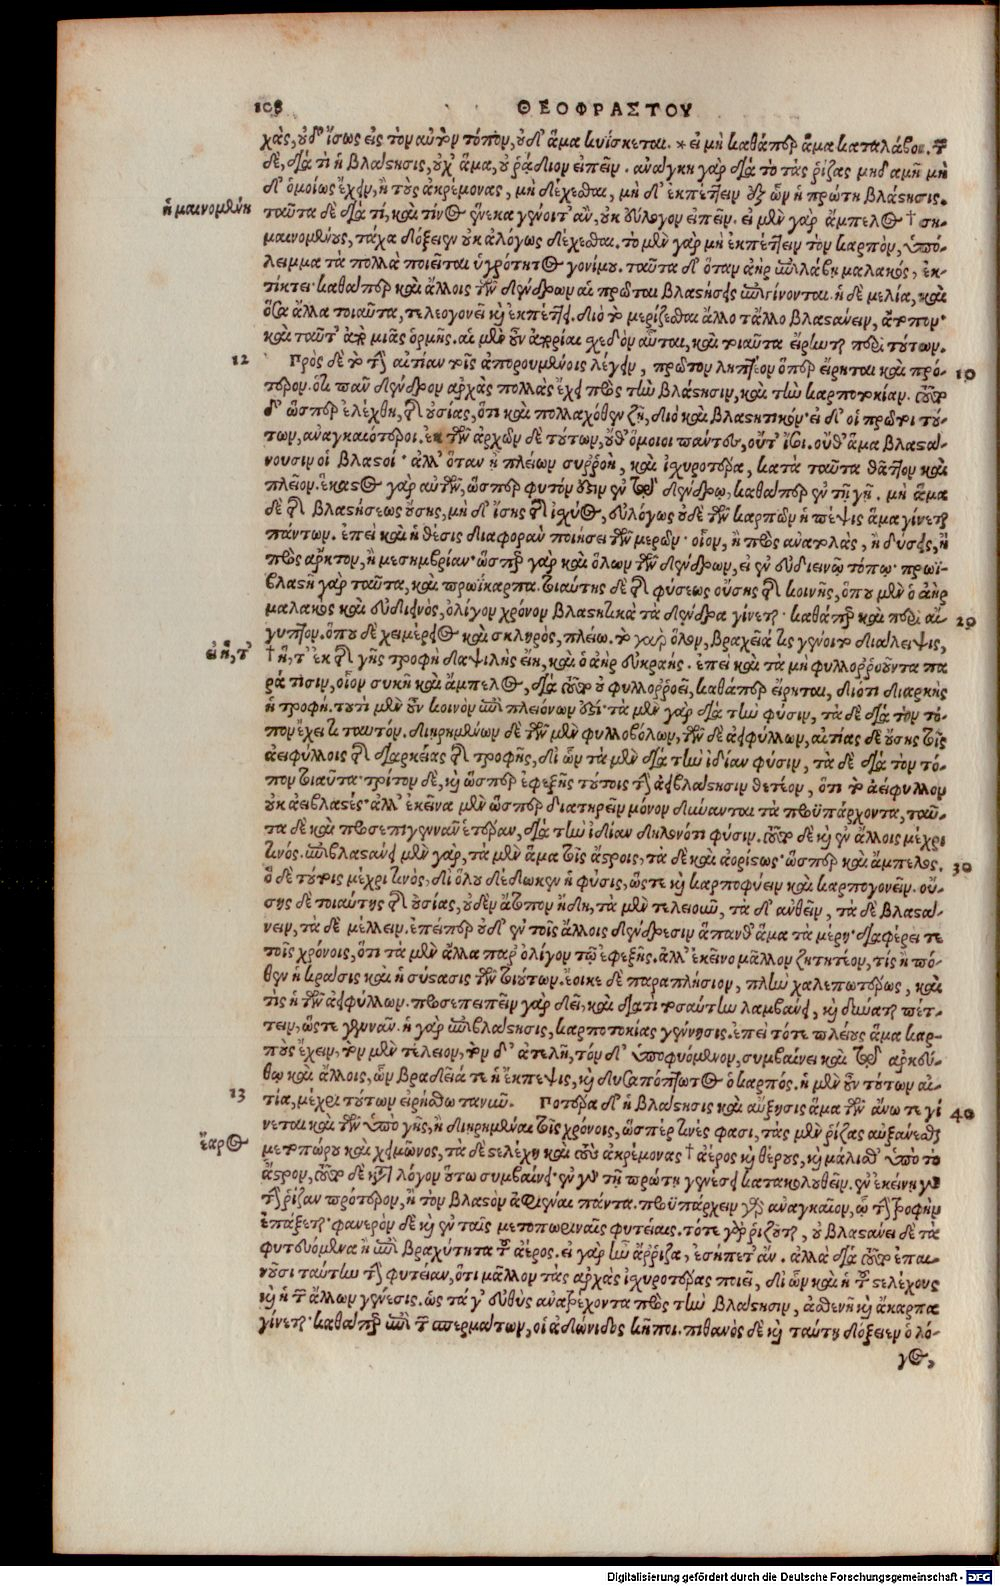 108 ΘΕΟΦΡΑΣΤΟΥ
χὰς, οὐδ' ἴσως εἰς τὸν αὐτὸν τόπον, οὐδ' ἅμα κυΐσκεται. * εἰ μὴ καθάπερ ἅμα καταλάβοι. τὸ
δὲ, διὰ τὶ ἡ βλάστησις, οὐχ ἅμα, οὐ ῥάδιον εἰπεῖν. ἀνάγκη γὰρ διὰ τὸ τὰς ῥίζας μηδαμῆ μὴ
δ' ὁμοίως ἔχειν, ἢ τοὺς ἀκρέμονας, μὴ δέχεσθαι, μὴ δ' ἐκπέττειν ἐξ ὧν ἡ πρώτη βλάστησις.
ἡ μαινομένη ταῦτα δὲ διὰ τί, καὶ τίνος ἕνεκα γένοιτ' ἂν, οὐκ εὔλογον εἰπεῖν. εἰ μὲν γὰρ ἄμπελος † ση-
μαινομένους, τάχα δόξειεν οὐκ ἀλόγως δέχεσθαι. τὸ μὲν γὰρ μὴ ἐκπέττειν τὸν καρπὸν, ὑπό-
λειμμα τὰ πολλὰ ποιεῖται ὑγρότητος γονίμου. ταῦτα δ' ὅταν ἀὴρ ἐπιλάβῃ μαλακός, ἐκ-
τίκτει· καθάπερ καὶ ἄλλοις τῶν δένδρων αἱ πρῶται βλαστήσεις ἐπιγίνονται. ἡ δὲ μελία, καὶ
ὅσα ἄλλα τοιαῦτα, τελεογονεῖ καὶ ἐκπέττει. διὸ τὸ μερίζεσθαι ἄλλο τἄλλο βλαστάνειν, ἄτοπον·
καὶ ταῦτ' ἀπὸ μιᾶς ὁρμῆς. αἱ μὲν οὖν ἀπορίαι σχεδὸν αὗται, καὶ τοιαῦται εἴρηνται περὶ τούτων.
12 Πρὸς δὲ τὸ τὴν αἰτίαν τοῖς ἀπορουμένοις λέγειν, πρῶτον ληπτέον ὅπερ εἴρηται καὶ πρό- 10
τερον. ὅτι πᾶν δένδρον ἀρχὰς πολλὰς ἔχει πρὸς τὴν βλάστησιν, καὶ τὴν καρποτοκίαν. τοῦτο
δ' ὥσπερ ἐλέχθη, τῆς οὐσίας, ὅτι καὶ πολλαχόθεν ζῇ, διὸ καὶ βλαστητικόν· εἰ δ' οἱ πρῶτοι τού-
των, ἀναγκαιότεροι. ἐκ τῶν ἀρχῶν δὲ τούτων, οὔθ' ὅμοιοι πάντες, οὔτ' ἴσοι. οὔθ' ἅμα βλαστά-
νουσιν οἱ βλαστοί· ἀλλ' ὅταν ἡ πλείων συρροὴ, καὶ ἰσχυροτέρα, κατὰ ταῦτα θᾶττον καὶ
πλεῖον. ἕκαστος γὰρ αὐτῶν, ὥσπερ φυτόν ἐστιν ἐν τῷ δένδρῳ, καθάπερ ἐν τῇ γῇ. μὴ ἅμα
δὲ τῆς βλαστήσεως οὔσης, μὴ δ' ἴσης τῆς ἰσχύος, εὐλόγως οὐδὲ τῶν καρπῶν ἡ πέψις ἅμα γίνεται
πάντων. ἐπεὶ καὶ ἡ θέσις διαφορὰν ποιήσει τῶν μερῶν· οἷον, ἢ πρὸς ἀνατολὰς, ἢ δύσεις, ἢ
πρὸς ἄρκτον, ἢ μεσημβρίαν· ὥσπερ γὰρ καὶ ὅλων τῶν δένδρων, εἰ ἐν εὐδιεινῷ τόπῳ· πρωϊ-
βλαστῆ γὰρ ταῦτα, καὶ πρωΐκαρπα. τοιαύτης δὲ τῆς φύσεως οὔσης τῆς κοινῆς, ὅπου μὲν ὁ ἀὴρ
μαλακὸς καὶ εὐδιεινὸς, ὀλίγον χρόνον βλαστητικὰ τὰ δένδρα γίνεται· καθάπερ καὶ περὶ αἴ- 20
γυπτον. ὅπου δὲ χειμέριος καὶ σκληρὸς, πλείω. τὸ γὰρ ὅλον, βραχεῖά τις γένοιτο διάλειψις,
εἰ ἥ, τ' † ἥ, τ' ἐκ τῆς γῆς τροφὴ δαψιλὴς εἴη, καὶ ὁ ἀὴρ εὐκραής. ἐπεὶ καὶ τὰ μὴ φυλλορροοῦντα πα
ρά τισιν, οἷον συκῆ καὶ ἄμπελος, διὰ τοῦτο οὐ φυλλορροεῖ, καθάπερ εἴρηται, διότι διαρκὴς
ἡ τροφή. τουτὶ μὲν οὖν κοινὸν ἐπὶ πλειόνων ἐστί· τὰ μὲν γὰρ διὰ τὴν φύσιν, τὰ δὲ διὰ τὸν τό-
πον ἔχει τι ταυτόν. διῃρημένων δὲ τῶν μὲν φυλλοβόλων, τῶν δὲ ἀειφύλλων, αἰτίας δὲ οὔσης τοῖς
ἀειφύλλοις τῆς διαρκείας τῆς τροφῆς, δι' ὧν τὰ μὲν διὰ τὴν ἰδίαν φύσιν, τὰ δὲ διὰ τὸν τό-
πον τοιαῦτα· τρίτον δὲ, καὶ ὥσπερ ἐφεξῆς τούτοις τὴν ἀειβλάστησιν θετέον, ὅτι τὸ ἀείφυλλον
οὐκ ἀειβλαστές· ἀλλ' ἐκεῖνα μὲν ὥσπερ διατηρεῖν μόνον δύνανται τὰ προϋπάρχοντα, ταῦ-
τα δὲ καὶ προσεπιγεννᾶν ἕτεραν, διὰ τὴν ἰδίαν δηλονότι φύσιν. τοῦτο δὲ καὶ ἐν ἄλλοις μέχρι
τινός. ἐπιβλαστάνει μὲν γὰρ, τὰ μὲν ἅμα τοῖς ἄστροις, τὰ δὲ καὶ ἀορίστως· ὥσπερ καὶ ἄμπελος. 30
ὃ δὲ τούτοις μέχρι τινὸς, δι' ὅλου δέδωκεν ἡ φύσις, ὥστε καὶ καρποφύειν καὶ καρπογονεῖν. οὔ-
σης δὲ τοιαύτης τῆς οὐσίας, οὐδὲν ἄτοπον ἤδη, τὰ μὲν τελειοῦν, τὰ δ' ἀνθεῖν, τὰ δὲ βλαστά-
νειν, τὰ δὲ μέλλειν. ἐπείπερ οὐδ' ἐν τοῖς ἄλλοις δένδρεσιν ἅπανθ' ἅμα τὰ μέρη· διαφέρει τε
τοῖς χρόνοις, ὅτι τὰ μὲν ἄλλα παρ' ὀλίγον τῷ ἐφεξῆς. ἀλλ' ἐκεῖνο μᾶλλον ζητητέον, τίς ἢ πό-
θεν ἡ κρᾶσις καὶ ἡ σύστασις τῶν τοιούτων. ἔοικε δὲ παραπλήσιον, πλὴν χαλεπωτέρως, καὶ
τίς ἡ τῶν ἀειφύλλων. προσεπειπεῖν γὰρ δεῖ, καὶ διατί τοσαύτην λαμβάνει, καὶ δύναται πέτ-
τειν, ὥστε γεννᾶν. ἡ γὰρ ἐπιβλάστησις, καρποτοκίας γέννησις. ἐπεὶ τότε πλείους ἅμα καρ-
ποὺς ἔχειν, τὸν μὲν τέλειον, τὸν δ' ἀτελῆ, τὸν δ' ὑποφυόμενον, συμβαίνει καὶ τῷ ἀρκεύ-
θῳ καὶ ἄλλοις, ὧν βραδεῖά τε ἡ ἔκπεψις, καὶ δυσαπόπτωτος ὁ καρπός. ἡ μὲν οὖν τούτων αἰ-
13 τία, μέχρι τούτων εἰρήσθω τανῦν. Πότερα δ' ἡ βλάστησις καὶ αὔξησις ἅμα τῶν ἄνω τε γί 40
νεται καὶ τῶν ὑπὸ γῆς, ἢ διῃρημέναι τοῖς χρόνοις, ὥσπερ τινές φασι, τὰς μὲν ῥίζας αὐξάνεσθαι
ἔαρος μετοπώρου καὶ χειμῶνος, τὰ δὲ στελέχη καὶ τοὺς ἀκρέμονας † ἀέρος καὶ θέρους, καὶ μάλισθ' ὑπὸ τὸ
ἄστρον, τοῦτο δὲ κατὰ λόγον οὕτω συμβαίνει· ἐν γὰρ τῇ πρώτῃ γενέσει κατακολουθεῖν. ἐν ἐκείνῃ γὰρ
τὴν ῥίζαν πρότερον, ἢ τὸν βλαστὸν ἀφιέναι πάντα. προϋπάρχειν γὰρ ἀναγκαῖον, ᾧ τὴν τροφὴν
ἐπάξεται· φανερὸν δὲ καὶ ἐν ταῖς μετοπωριναῖς φυτείαις. τότε γὰρ ῥιζοῦται, οὐ βλαστάνει δὲ τὰ
φυτευόμενα ἢ ἐπὶ βραχύτητα τοῦ ἀέρος. εἰ γὰρ ἦν ἄρριζα, ἐσήπετ' ἄν. ἀλλὰ διὰ τοῦτο ἐπαι-
νοῦσι ταύτην τὴν φυτείαν, ὅτι μᾶλλον τὰς ἀρχὰς ἰσχυροτέρας ποιεῖ, δι' ὧν καὶ ἡ τοῦ στελέχους
καὶ ἡ τῶν ἄλλων γένεσις. ὡς τά γ' εὐθὺς ἀνατρέχοντα πρὸς τὴν βλάστησιν, ἀσθενῆ καὶ ἄκαρπα
γίνεται· καθάπερ ἐπὶ τῶν σπερμάτων, οἱ ἀδώνιδος κῆποι. πιθανὸς δὲ καὶ ταύτῃ δόξειεν ὁ λό-
γος,
Digitalisierung gefördert durch die Deutsche Forschungsgemeinschaft - DFG